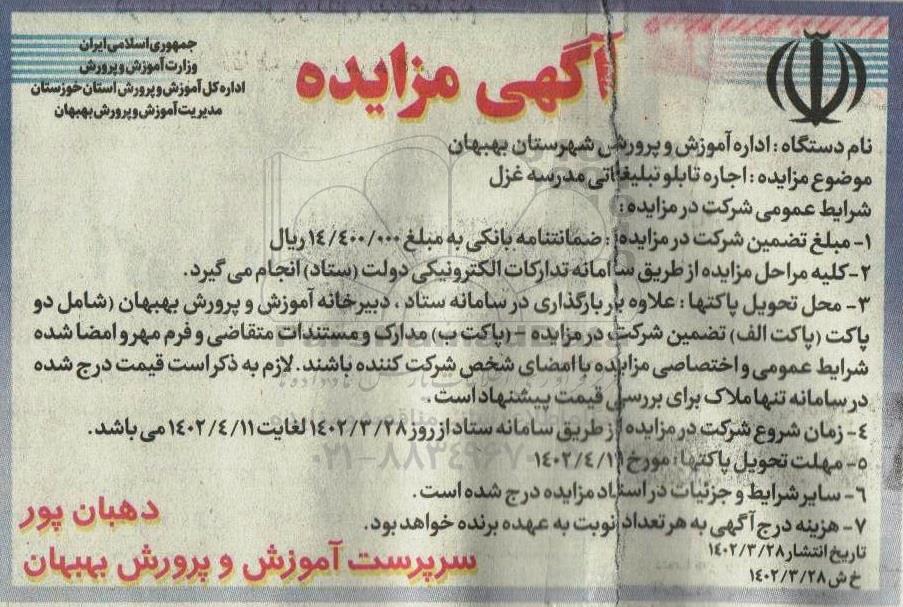 جمهوری اسلامی ایران
وزارت آموزش و پرورش
اداره کل آموزش و پرورش استان خوزستان
مدیریت آموزش و پرورش بهبهان
آگهی مزایده
نام دستگاه : اداره آموزش و پرورش شهرستان بهبهان
موضوع مزایده : اجاره تابلو تبلیغاتی مدرسه غزل
شرایط عمومی شرکت در مزایده :
۱- مبلغ تضمین شرکت در مزایده : ضمانتنامه بانکی به مبلغ ۱۴/۴۰۰/۰۰۰ ریال
۲- کلیه مراحل مزایده از طریق سامانه تدارکات الکترونیکی دولت (ستاد) انجام می گیرد.
۳- محل تحویل پاکتها : علاوه بر بارگذاری در سامانه ستاد ، دبیرخانه آموزش و پرورش بهبهان (شامل دو
پاکت (پاکت الف) تضمین شرکت در مزایده - (پاکت ب) مدارک و مستندات متقاضی و فرم مهر و امضا شده
شرایط عمومی و اختصاصی مزایده با امضای شخص شرکت کننده باشند. لازم به ذکر است قیمت درج شده
در سامانه تنها ملاک برای بررسی قیمت پیشنهاد است.
۴- زمان شروع شرکت در مزایده از طریق سامانه ستاد از روز ۱۴۰۲/۳/۲۸ لغایت ۱۴۰۲/۴/۱۱ می باشد.
۵- مهلت تحویل پاکتها: مورخ ۱۴۰۲/۴/۱۱
۶- سایر شرایط و جزئیات در اسناد مزایده درج شده است.
۷- هزینه درج آگهی به هر تعداد نوبت به عهده برنده خواهد بود.
تاریخ انتشار ۱۴۰۲/۳/۲۸
خ ش ۱۴۰۲/۳/۲۸
دهبان پور
سرپرست آموزش و پرورش بهبهان
۰۲۱-۸۸۳۴۹۶۷۰